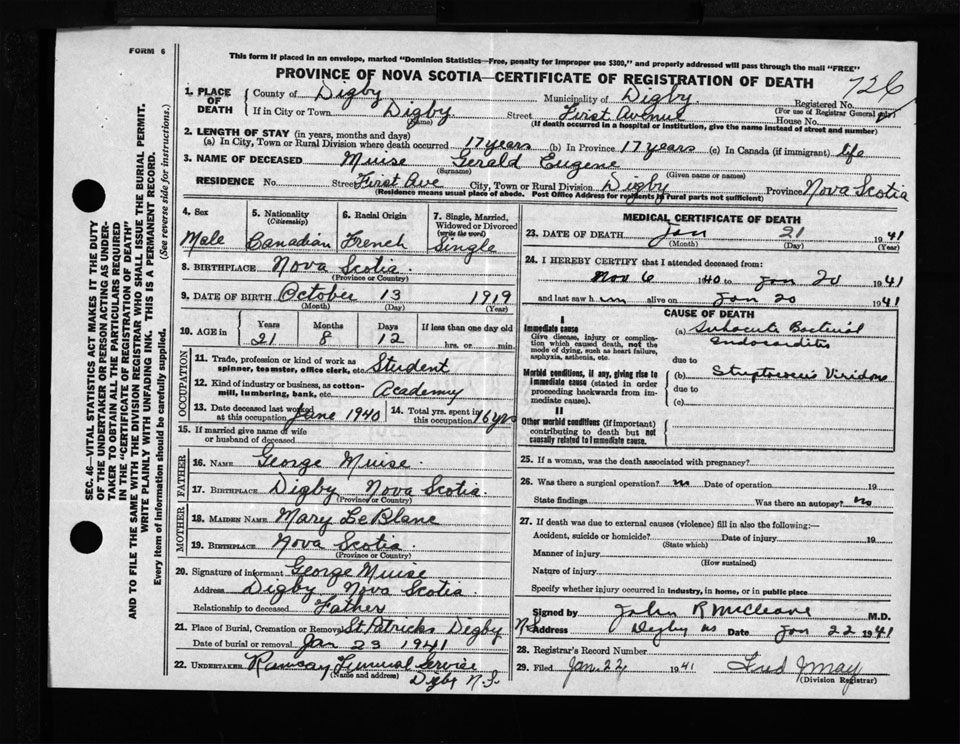 FORM 6
This form if placed in an envelope, marked "Dominion Statistics—Free, penalty for improper use $300," and properly addressed will pass through the mail "FREE"
PROVINCE OF NOVA SCOTIA—CERTIFICATE OF REGISTRATION OF DEATH
726
1. PLACE OF DEATH
County of Digby Municipality of Digby Registered No.
(For use of Registrar General only)
If in City or Town Digby Street First Avenue House No.
(Name) (If death occurred in a hospital or institution, give the name instead of street and number)
2. LENGTH OF STAY (in years, months and days)
(a) In City, Town or Rural Division where death occurred 17 years (b) In Province 17 years (c) In Canada (if immigrant) life
3. NAME OF DECEASED Muise Gerald Eugene
(Surname) (Given name or names)
RESIDENCE No. Street First Ave City, Town or Rural Division Digby Province Nova Scotia
(Residence means usual place of abode. Post Office Address for residents in rural parts not sufficient)
4. Sex Male
5. Nationality (Citizenship) Canadian
6. Racial Origin French
7. Single, Married, Widowed or Divorced (write the word) Single
8. BIRTHPLACE Nova Scotia
(Province or Country)
9. DATE OF BIRTH October 13 1919
(Month) (Day) (Year)
10. AGE in Years Months Days If less than one day old
21 8 12 hrs. or min.
OCCUPATION
11. Trade, profession or kind of work as spinner, teamster, office clerk, etc. Student
12. Kind of industry or business, as cotton-mill, lumbering, bank, etc. Academy
13. Date deceased last worked at this occupation June 1940
14. Total yrs. spent in this occupation 16 yrs
15. If married give name of wife or husband of deceased
FATHER
16. NAME George Muise
17. BIRTHPLACE Digby Nova Scotia
(Province or Country)
MOTHER
18. MAIDEN NAME Mary LeBlanc
19. BIRTHPLACE Nova Scotia
(Province or Country)
20. Signature of informant George Muise
Address Digby Nova Scotia
Relationship to deceased Father
21. Place of Burial, Cremation or Removal St Patricks Digby
Date of burial or removal Jan 23 1941
22. UNDERTAKER Ramsay Funeral Service
(Name and address) Digby N.S.
MEDICAL CERTIFICATE OF DEATH
23. DATE OF DEATH Jan 21 1941
(Month) (Day) (Year)
24. I HEREBY CERTIFY that I attended deceased from:
Nov 6 1940 to Jan 20 1941
and last saw him alive on Jan 20 1941
CAUSE OF DEATH
I
Immediate cause
Give disease, injury or complication which caused death, not the mode of dying, such as heart failure, asphyxia, asthenia, etc.
(a) Subacute Bacterial Endocarditis
due to
Morbid conditions, if any, giving rise to immediate cause (stated in order proceeding backwards from immediate cause).
(b) Streptococcus Viridans
due to
(c)
II
Other morbid conditions (if important) contributing to death but not causally related to immediate cause.
25. If a woman, was the death associated with pregnancy?
26. Was there a surgical operation? no Date of operation 19
State findings Was there an autopsy? no
27. If death was due to external causes (violence) fill in also the following:—
Accident, suicide or homicide? Date of injury 19
(State which)
Manner of injury
(How sustained)
Nature of injury
Specify whether injury occurred in industry, in home, or in public place
Signed by John R McCleave M.D.
N.S.
Address Digby NS Date Jan 22 1941
28. Registrar's Record Number
29. Filed Jan 22 1941 Fred J May
(Division Registrar)
SEC. 46—VITAL STATISTICS ACT MAKES IT THE DUTY
OF THE UNDERTAKER OR PERSON ACTING AS UNDER-
TAKER TO OBTAIN ALL THE PARTICULARS REQUIRED
IN THE "CERTIFICATE OF REGISTRATION OF DEATH"
AND TO FILE THE SAME WITH THE DIVISION REGISTRAR WHO SHALL ISSUE THE BURIAL PERMIT.
WRITE PLAINLY WITH UNFADING INK. THIS IS A PERMANENT RECORD.
Every item of information should be carefully supplied. (See reverse side for instructions.)